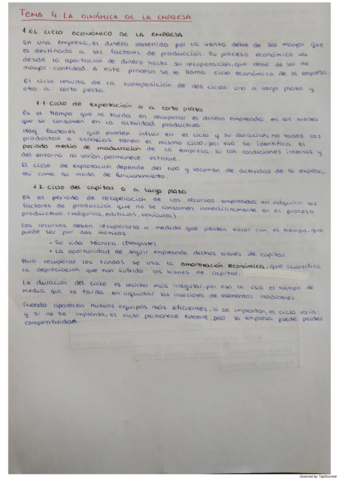 TEMA 4 LA DINÁMICA DE LA EMPRESA
1. EL CICLO ECONÓMICO DE LA EMPRESA
En una empresa, el dinero obtenido por la venta debe de ser mayor que
el destinado a los factores de producción. Su proceso económico va
desde la aportación de dinero hasta su recuperación, que debe de ser de
mayor cantidad. A este proceso se le llama ciclo económico de la empresa.
El ciclo resulta de la de dos ciclos: uno a largo plazo y
otro a corto plazo.
1.1 Ciclo de explotación o a corto plazo
Es el tiempo que se tarda en recuperar el dinero empleado en los bienes
que se consumen en la actividad productiva.
Hay factores que pueden influir en el ciclo y su duración, no todos los
productos o servicios tienen el mismo ciclo, por eso se identifica el
periodo medio de maduración de la empresa. Si las condiciones internas y
del entorno no varían, permanece estable.
El ciclo de explotación depende del tipo y volumen de actividad de la empresa,
así como su modo de funcionamiento.
1.2. Ciclo del capital o a largo plazo
Es el periodo de recuperación de los recursos empleados en adquirir los
factores de producción que no se consumen inmediatamente en el proceso
productivo. (Máquinas, edificios, vehículos).
Los recursos deben recuperarse a medida que pierden valor con el tiempo, que
puede ser por dos motivos:
• Su vida técnica (Desgaste)
• La oportunidad de seguir empleando dichos bienes de capital.
Para recuperar los fondos se usa la amortización económica, que cuantifica
la depreciación que han sufrido los bienes de capital.
La duración del ciclo es mucho más irregular, por eso se usa el tiempo de
media que se tarda en liquidar las inversiones de elementos
Cuando aparecen nuevos equipos más eficientes, si se implantan, el ciclo varía;
y si no se implanta, el ciclo permanece estable, pero la empresa puede perder
competitividad.
Scanned by TapScanner